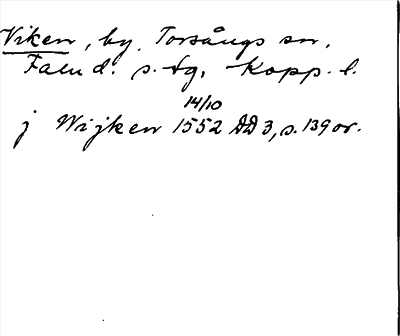 Viken, by, Torsångs sn,
Falu d. s. tg, Kopp. l.
14/10
j Wijken 1552 DD 3, s. 139 or.